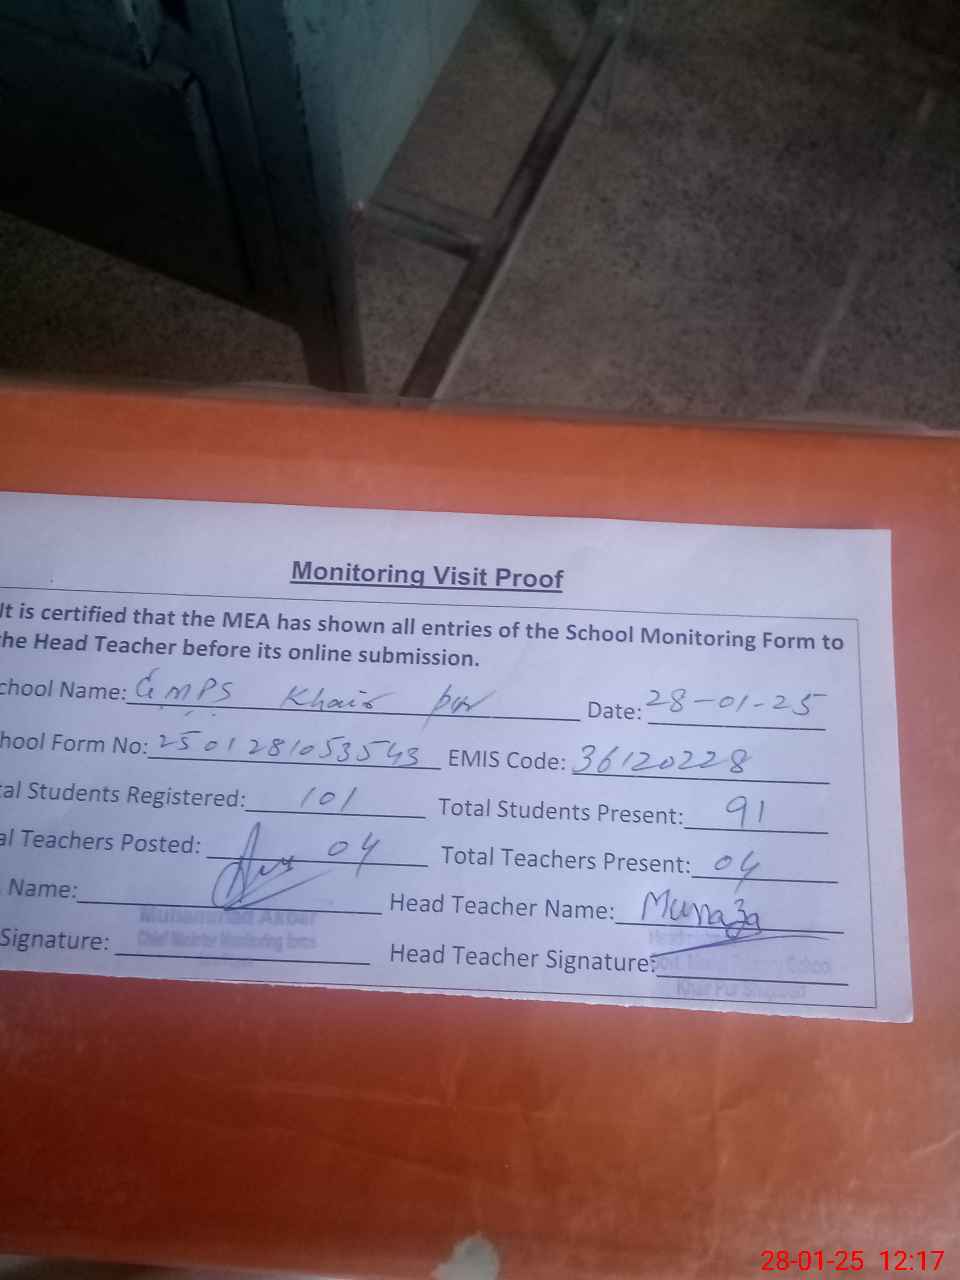 Monitoring Visit Proof
It is certified that the MEA has shown all entries of the School Monitoring Form to
the Head Teacher before its online submission.
chool Name: GMPS Khair pur Date: 28-01-25
hool Form No: 2501281053543 EMIS Code: 36120228
tal Students Registered: 101 Total Students Present: 91
al Teachers Posted: 04 Total Teachers Present: 04
Name: Head Teacher Name: Munaza
Muhammad Akbar
Signature: Head Teacher Signature:
28-01-25 12:17